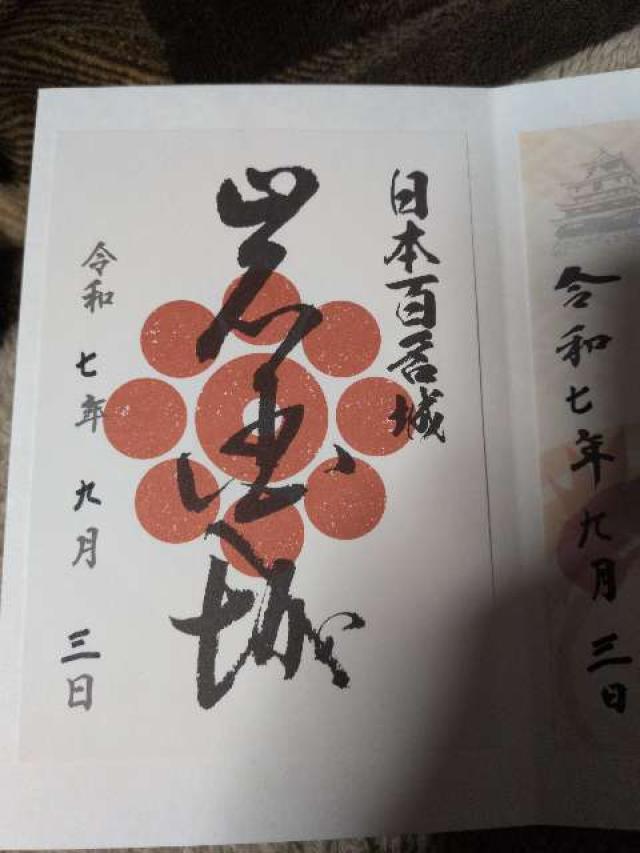 令和七年九月三日
日本百名城
岩国城
令和 七年 九月 三日